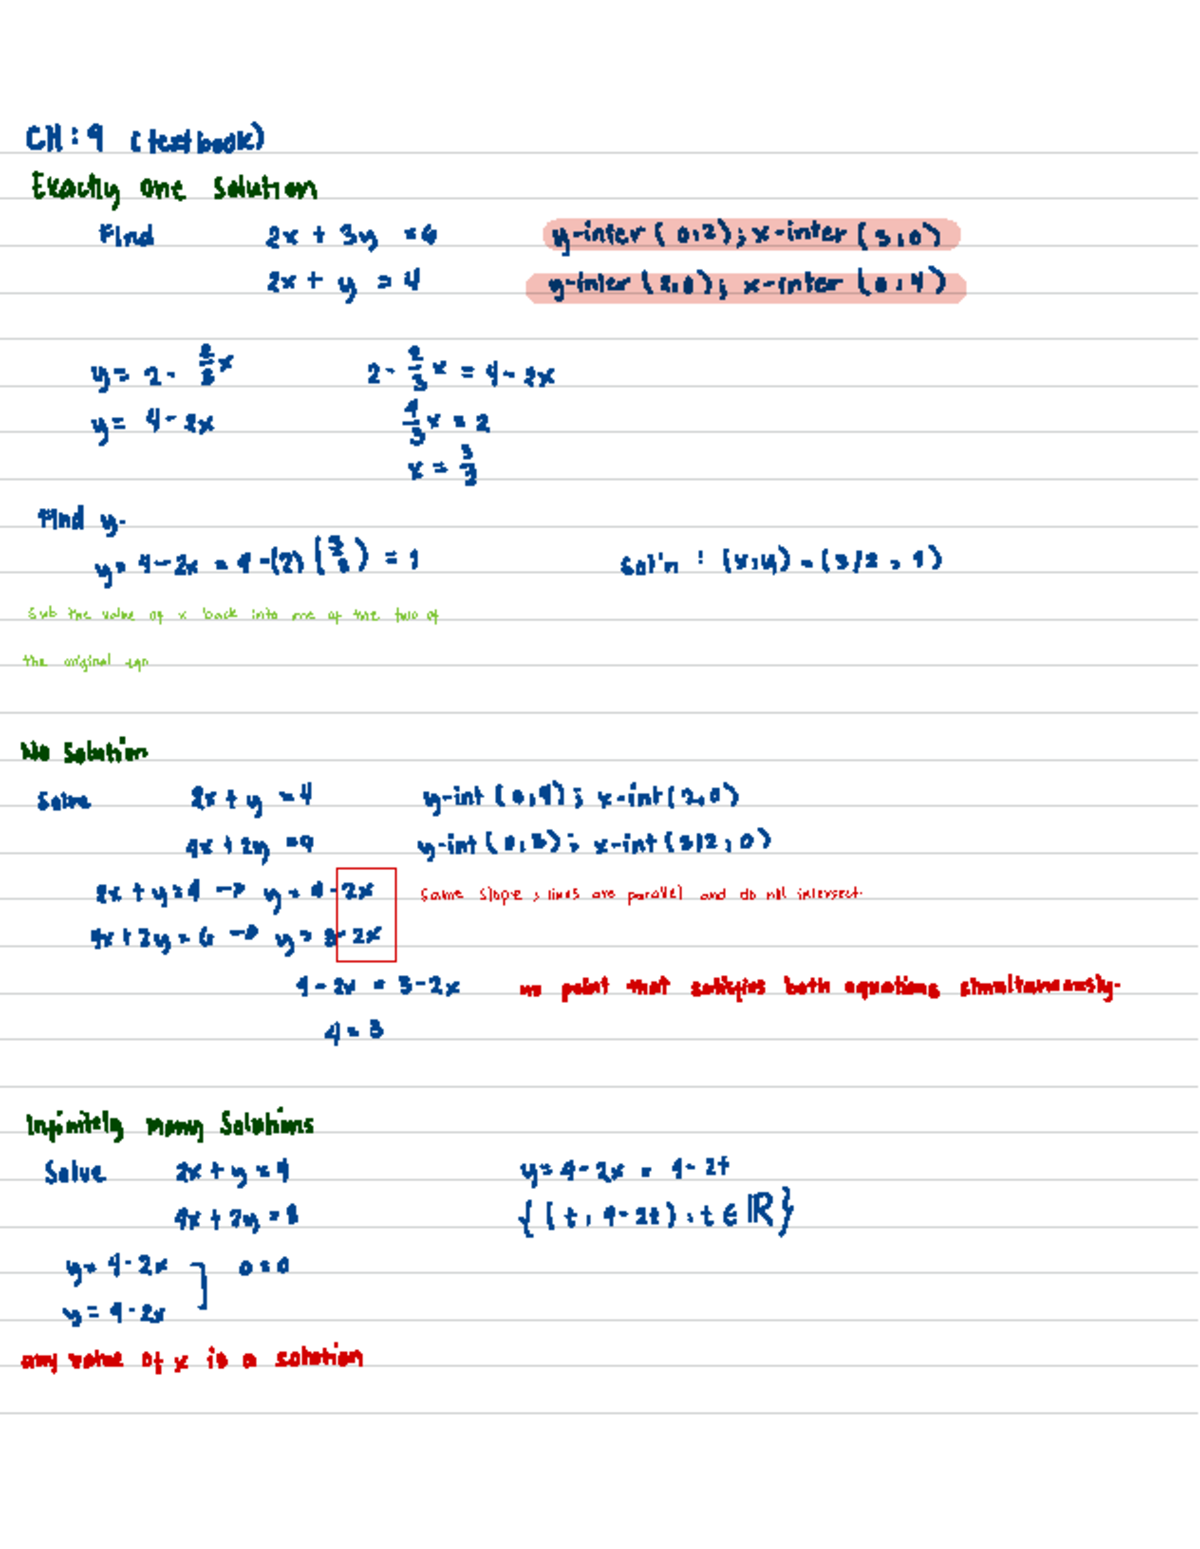 CH : 9 (textbook)
Exactly one solution
Find 2x + 3y = 6 y-inter (0,2); x-inter (3,0)
2x + y = 4 y-inter (2,0); x-inter (0,4)
y = 2 - 2/3 x 2 - 2/3 x = 4 - 2x
y = 4 - 2x 4/3 x = 2
x = 3/2
Find y.
y = 4 - 2x = 4 - (2) (3/2) = 1 sol'n : (x,y) = (3/2 , 1)
Sub the value of x back into one of the two of
the original eqn
No Solution
Solve 2x + y = 4 y-int (0,4); x-int (2,0)
4x + 2y = y-int (0,3); x-int (3/2, 0)
2x + y = 4 → y = 4 - 2x Same slope ; lines are parallel and do not intersect.
4x + 2y = 6 → y = 3 - 2x
4 - 2x = 3 - 2x no point that satisfies both equations simultaneously.
4 = 3
Infinitely many Solutions
Solve 2x + y = 4 y = 4 - 2x = 4 - 2t
4x + 2y = 8 { (t, 4 - 2t) : t ∈ ℝ }
y = 4 - 2x ] 0 = 0
y = 4 - 2x
any value of x is a solution